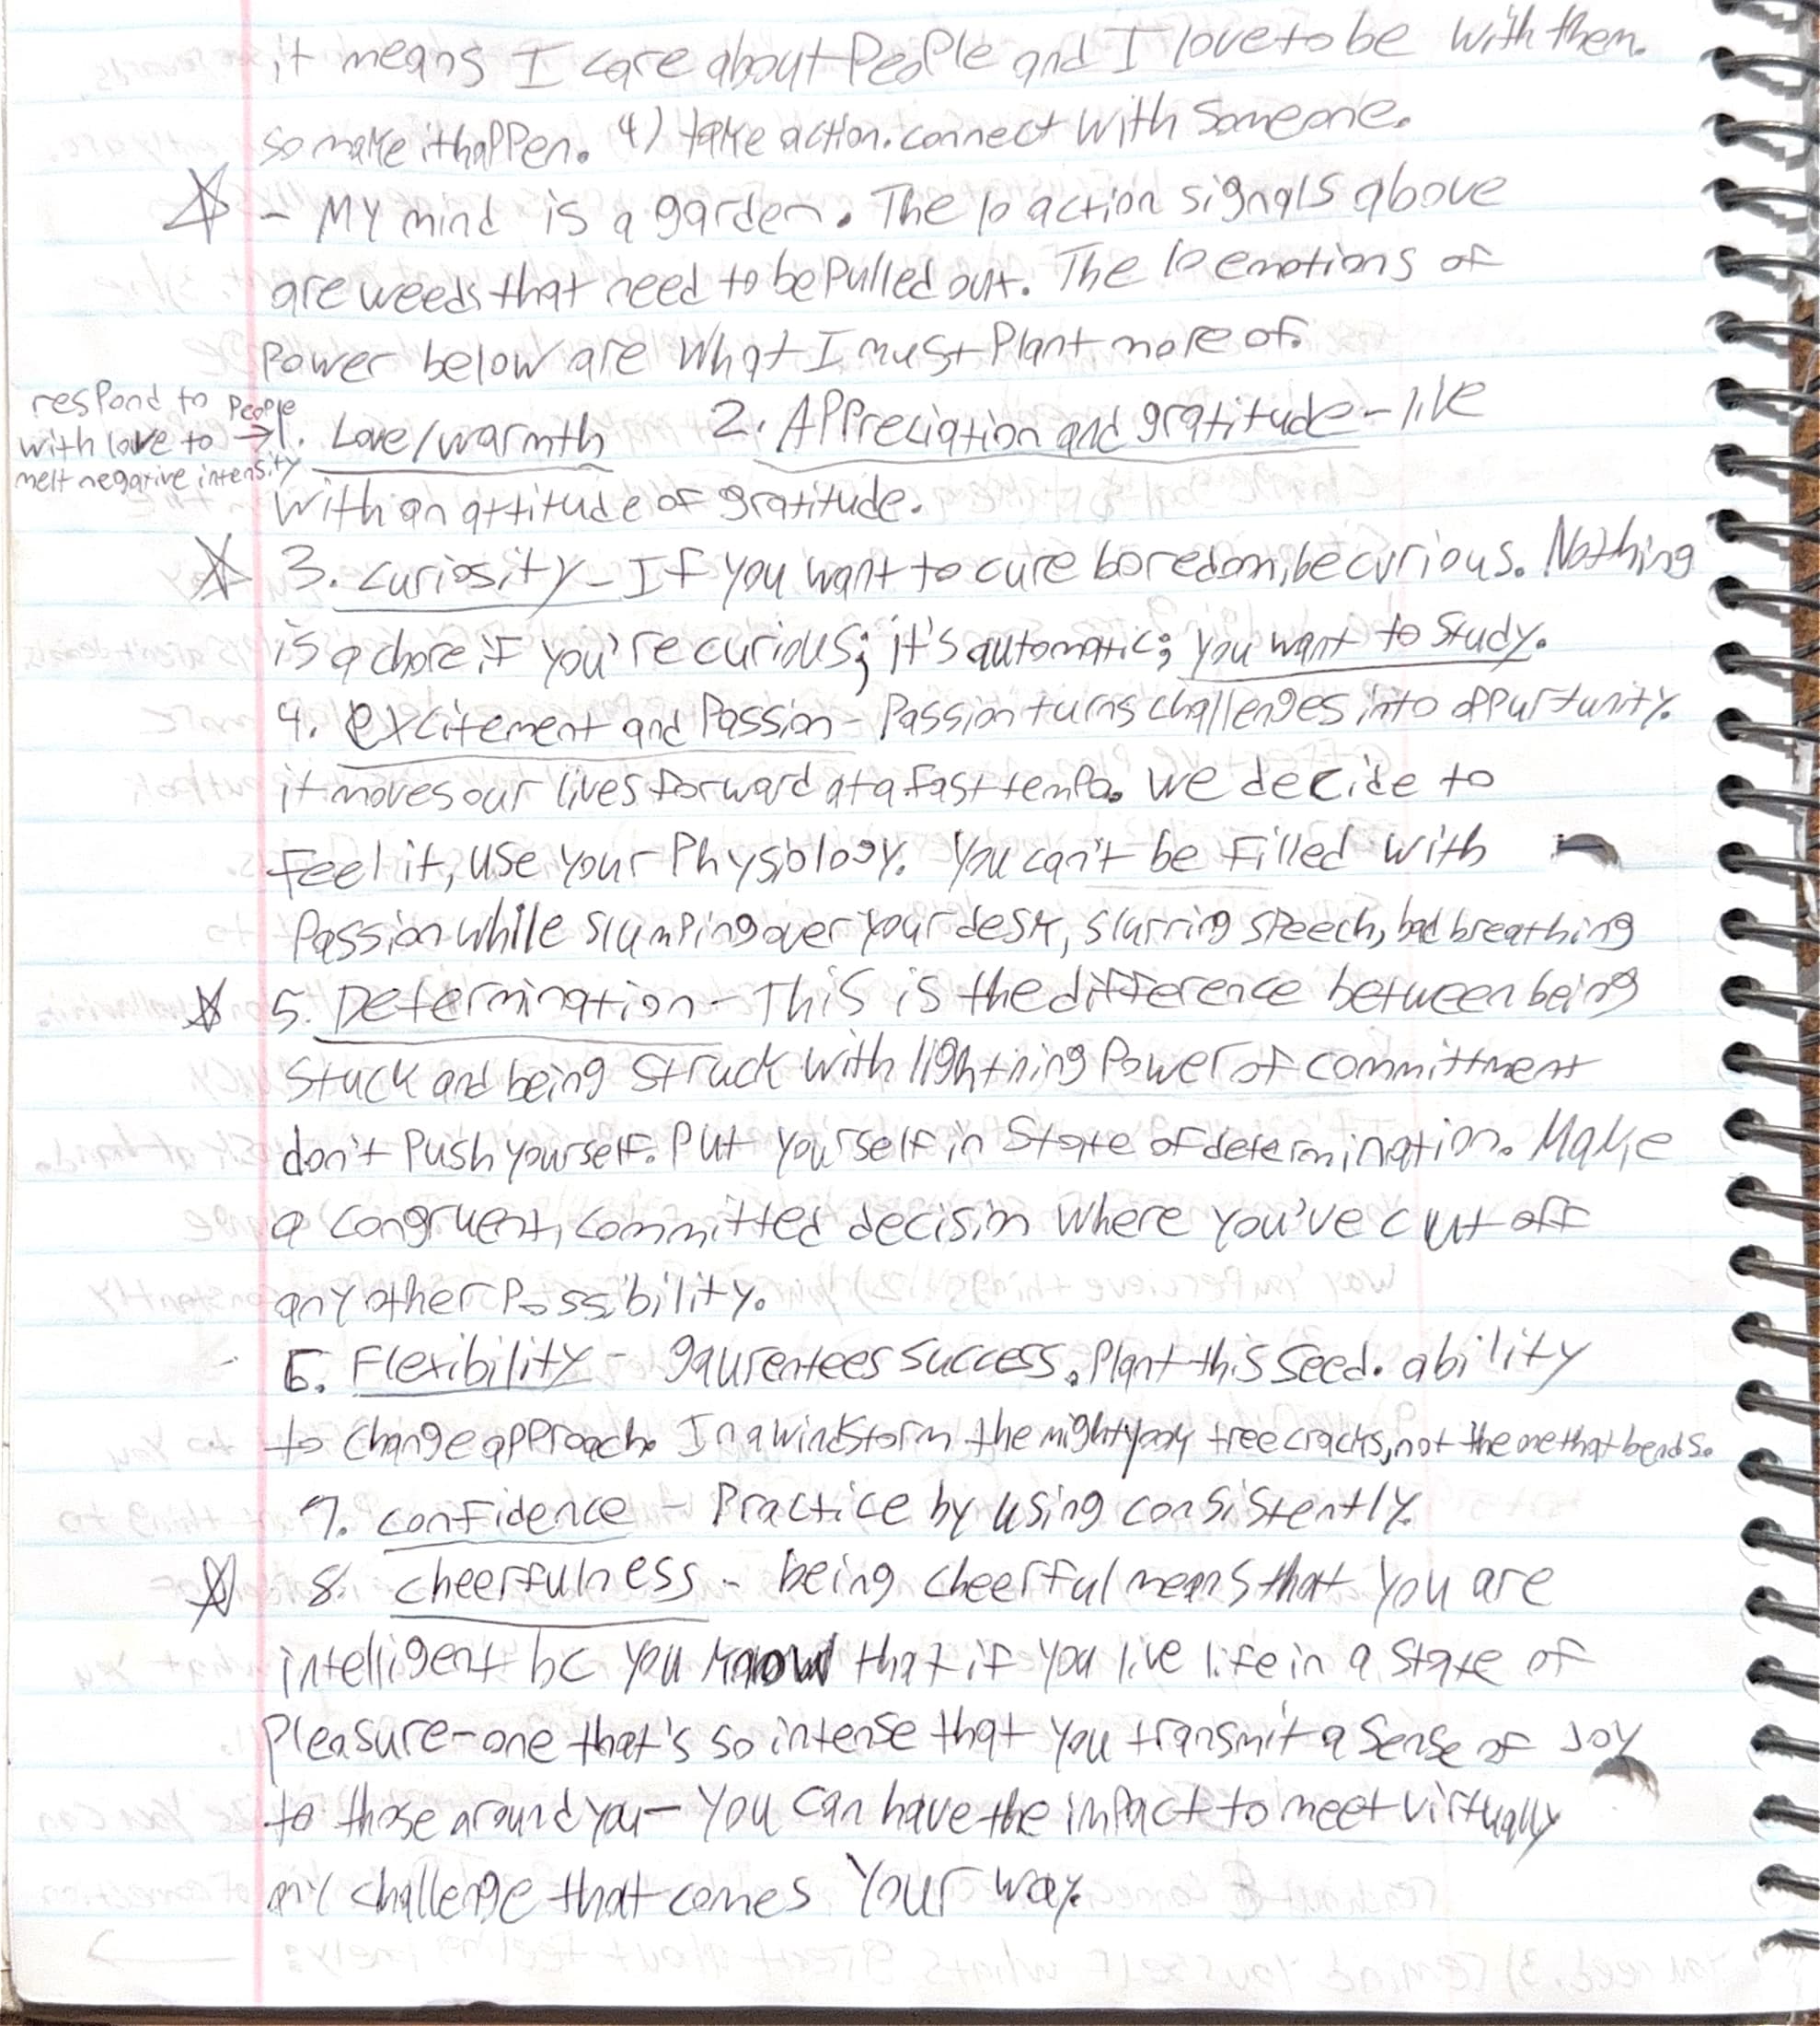 it means I care about People and I love to be with them.
so make it happen. 4) take action. connect with someone.
☆ - MY mind is a garden. The 10 action signals above
are weeds that need to be Pulled out. The 10 emotions of
Power below are what I must Plant more of.
respond to People
with love to →
melt negative intensity
1. Love/warmth 2. Appreciation and gratitude - live
with an attitude of gratitude.
☆ 3. curiosity - If you want to cure boredom, be curious. Nothing
is a chore if you're curious; it's automatic; you want to study.
4. excitement and Passion - Passion turns challenges into oppurtunity.
it moves our lives forward at a fast tempo. we decide to
feel it, use your Physiology. You can't be filled with
Passion while slumping over your desk, slurring speech, bad breathing
☆ 5. Determination - This is the difference between being
stuck and being struck with lightning Power of committment
don't Push yourself. Put yourself in state of determination. Make
a congruent, committed decision where you've cut off
any other Possibility.
6. Flexibility - gaurentees success. Plant this seed. ability
to change approach. In a windstorm the mighty oak tree cracks, not the one that bends.
7. confidence - Practice by using consistently.
☆ 8. cheerfulness - being cheerful means that you are
intelligent bc you know that if you live life in a state of
Pleasure - one that's so intense that you transmit a sense of Joy
to those around you - You can have the impact to meet virtually
any challenge that comes Your way.